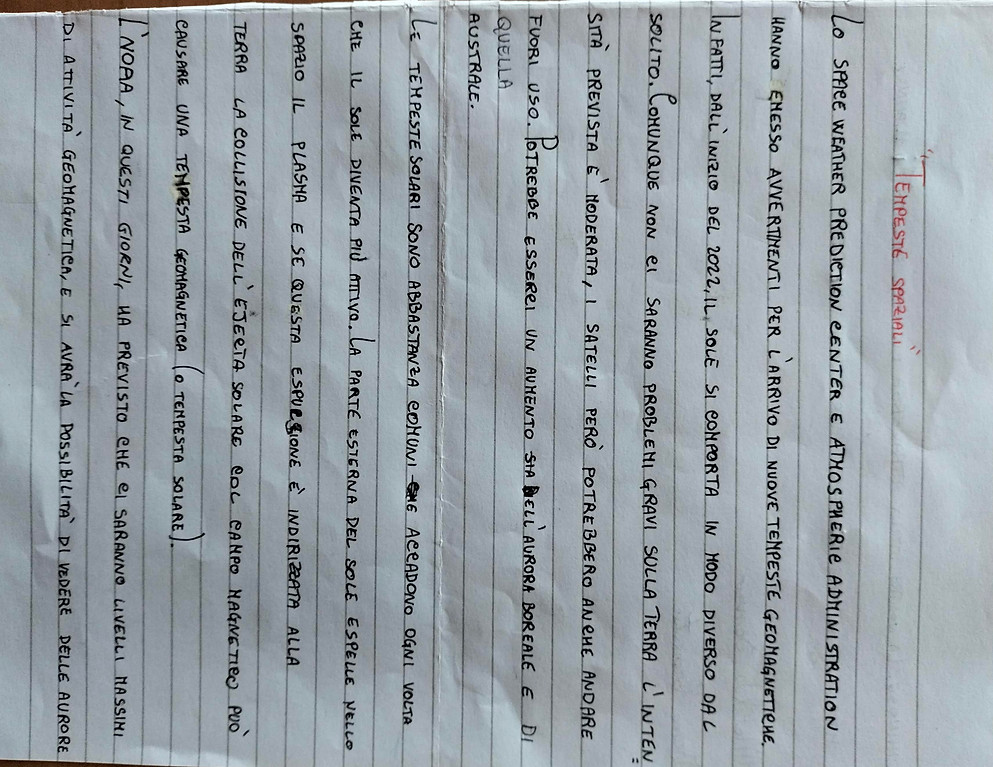 "TEMPESTE SPAZIALI"
LO SPACE WEATHER PREDICTION CENTER E ATMOSPHERIC ADMINISTRATION
HANNO EMESSO AVVERTIMENTI PER L'ARRIVO DI NUOVE TEMPESTE GEOMAGNETICHE.
INFATTI, DALL'INIZIO DEL 2022, IL SOLE SI COMPORTA IN MODO DIVERSO DAL
SOLITO. COMUNQUE NON CI SARANNO PROBLEMI GRAVI SULLA TERRA L'INTEN=
SITÀ PREVISTA È MODERATA, I SATELLI PERÒ POTREBBERO ANCHE ANDARE
FUORI USO. POTREBBE ESSERCI UN AUMENTO SIA DELL'AURORA BOREALE E DI
QUELLA
AUSTRALE.
LE TEMPESTE SOLARI SONO ABBASTANZA COMUNI CHE ACCADONO OGNI VOLTA
CHE IL SOLE DIVENTA PIÙ ATTIVO. LA PARTE ESTERNA DEL SOLE ESPELLE NELLO
SPAZIO IL PLASMA E SE QUESTA ESPULSIONE È INDIRIZZATA ALLA
TERRA LA COLLISIONE DELL'EJECTA SOLARE COL CAMPO MAGNETICO PUÒ
CAUSARE UNA TEMPESTA GEOMAGNETICA (O TEMPESTA SOLARE).
L'NOAA, IN QUESTI GIORNI, HA PREVISTO CHE CI SARANNO LIVELLI MASSIMI
DI ATTIVITÀ GEOMAGNETICA, E SI AVRÀ LA POSSIBILITÀ DI VEDERE DELLE AURORE